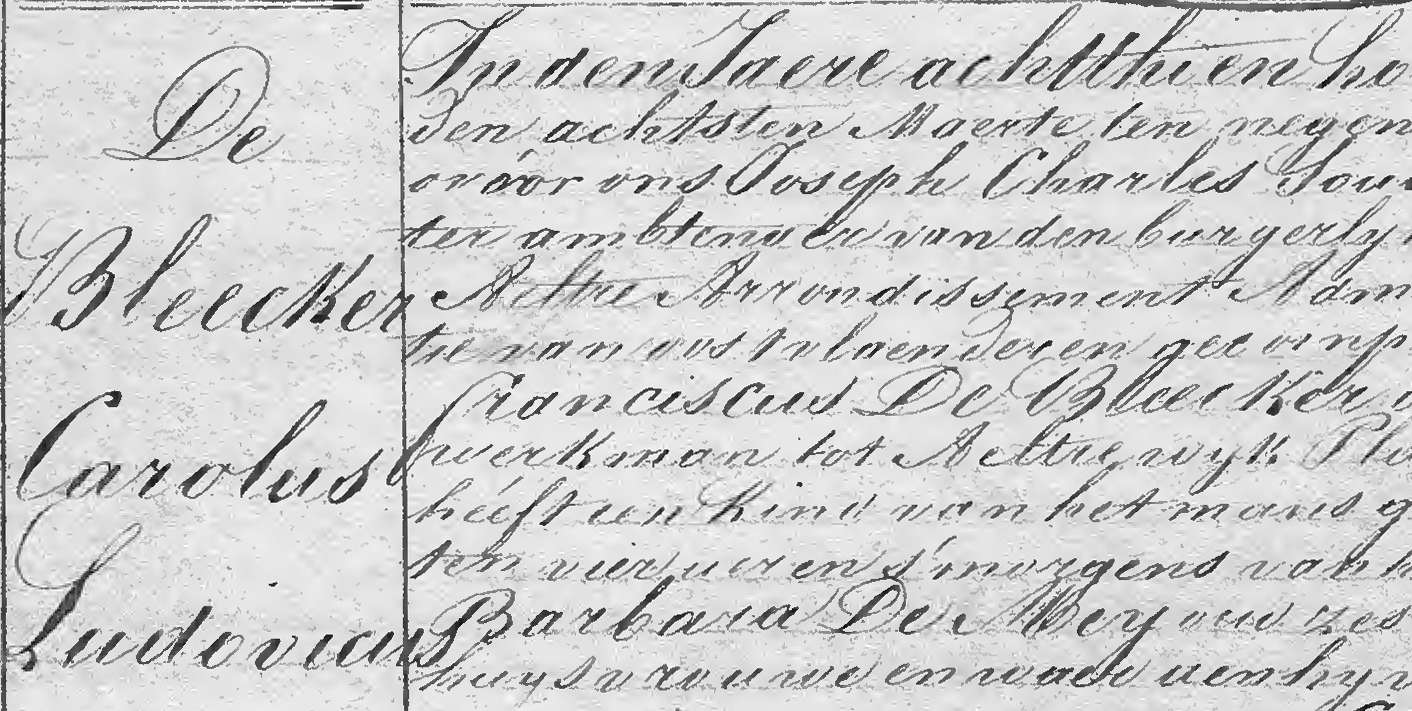 De
Bleecker
Carolus
Ludovicus
In den Jaere achtthien ho
den achtsten Maerte ten negen
voor ons Joseph Charles Sou
ter ambtenaer van den burgerly
Aeltre Arrondissement Adm
tie van oostvlaenderen gecomp
Franciscus De Bleecker
werkman tot Aeltre wyk Pla
heeft een Kind van het mans g
ten vier ueren s'morgens van
Barbara De Mey oud zes
huysvrouwe en waer aen hy